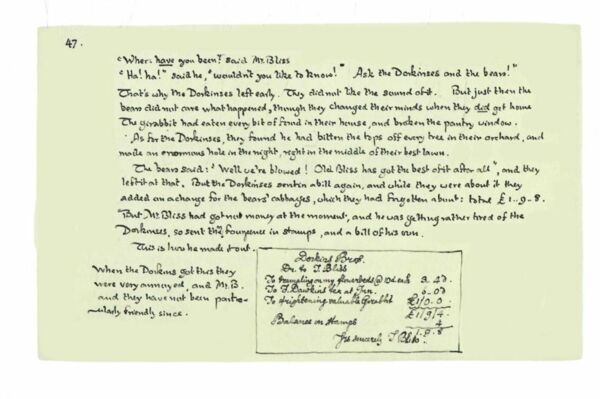 47.
"Where have you been?" said Mr. Bliss
"Ha! ha!" said he, "wouldn't you like to know!" Ask the Dorkinses and the bears!"
That's why the Dorkinses left early. They did not like the sound of it. But just then the
bears did not care what happened, though they changed their minds when they did get home
The girabbit had eaten every bit of food in their house, and broken the pantry window.
As for the Dorkinses, they found he had bitten the tops off every tree in their orchard, and
made an enormous hole in the night, right in the middle of their best lawn.
The bears said: "Well we're blowed! Old Bliss has got the best of it after all", and they
left it at that. But the Dorkinses sent in a bill again, and while they were about it they
added on a charge for the bears' cabbages, which they had forgotten about: total £1..9..8.
But Mr. Bliss had got no money at the moment, and he was getting rather tired of the
Dorkinses, so sent them fourpence in stamps, and a bill of his own.
This is how he made it out.
When the Dorkins got this they
were very annoyed, and Mr. B.
and they have not been partic-
ularly friendly since.
Dorkins Bros.
Dr. to J. Bliss
To trampling on my flowerbeds @ 10d each 3. 4d.
To J. Dawkins tea at Inn. 6. 0d
To frightening valuable Girabbit £1. 0. 0.
£1/9/4
Balance in stamps 4
1.9.8
Yrs sincerely J Bliss.